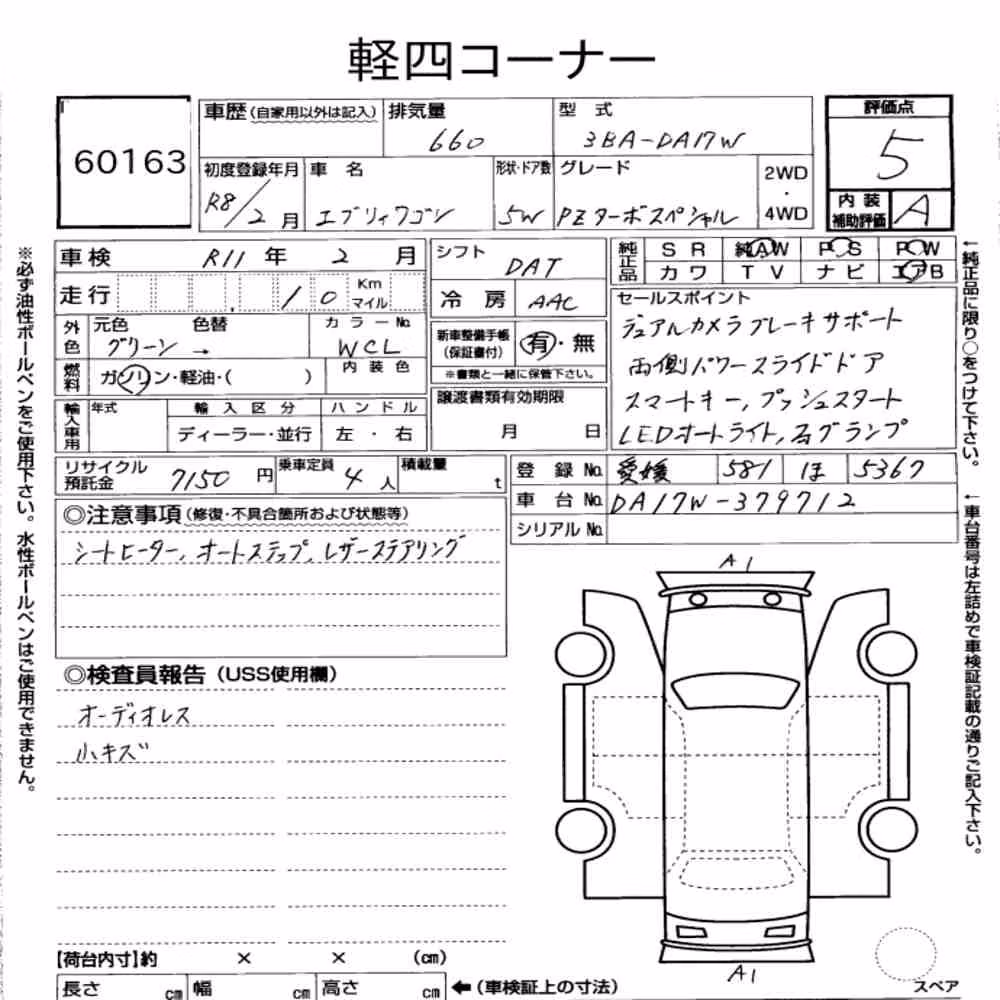 軽四コーナー
60163
車歴(自家用以外は記入)
排気量
660
型 式
3BA-DA17W
評価点
5
初度登録年月
R8/2月
車 名
エブリィワゴン
形状・ドア数
5W
グレード
PZターボスペシャル
2WD
・
4WD
内 装
補助評価
A
車検 R11 年 2 月
走行 10 Km マイル
シフト
DAT
冷 房 AAC
純正品
S R 純AW P S P W
カワ T V ナビ エアB
外色
元色 色替
グリーン →
カラーNo.
WCL
燃料
ガソリン・軽油・( )
内 装 色
新車整備手帳
(保証書付)
有・無
※書類と一緒に保管下さい。
セールスポイント
デュアルカメラブレーキサポート
両側パワースライドドア
スマートキー, プッシュスタート
LEDオートライト, フォグランプ
輸入車用
年式
輸 入 区 分
ディーラー・並行
ハ ン ド ル
左 ・ 右
譲渡書類有効期限
月 日
リサイクル
預託金
7150 円
乗車定員
4 人
積載量
t
登 録 No. 愛媛 581 ほ 5367
車 台 No. DA17W-379712
シリアル No.
◎注意事項(修復・不具合箇所および状態等)
シートヒーター, オートステップ, レザーステアリング
◎検査員報告(USS使用欄)
オーディオレス
小キズ
A1
A1
スペア
【荷台内寸】約 × × (cm)
長さ cm 幅 cm 高さ cm ←(車検証上の寸法)
※必ず油性ボールペンをご使用下さい。水性ボールペンはご使用できません。
←純正品に限り○をつけて下さい。
←車台番号は左詰めで車検証記載の通りご記入下さい。